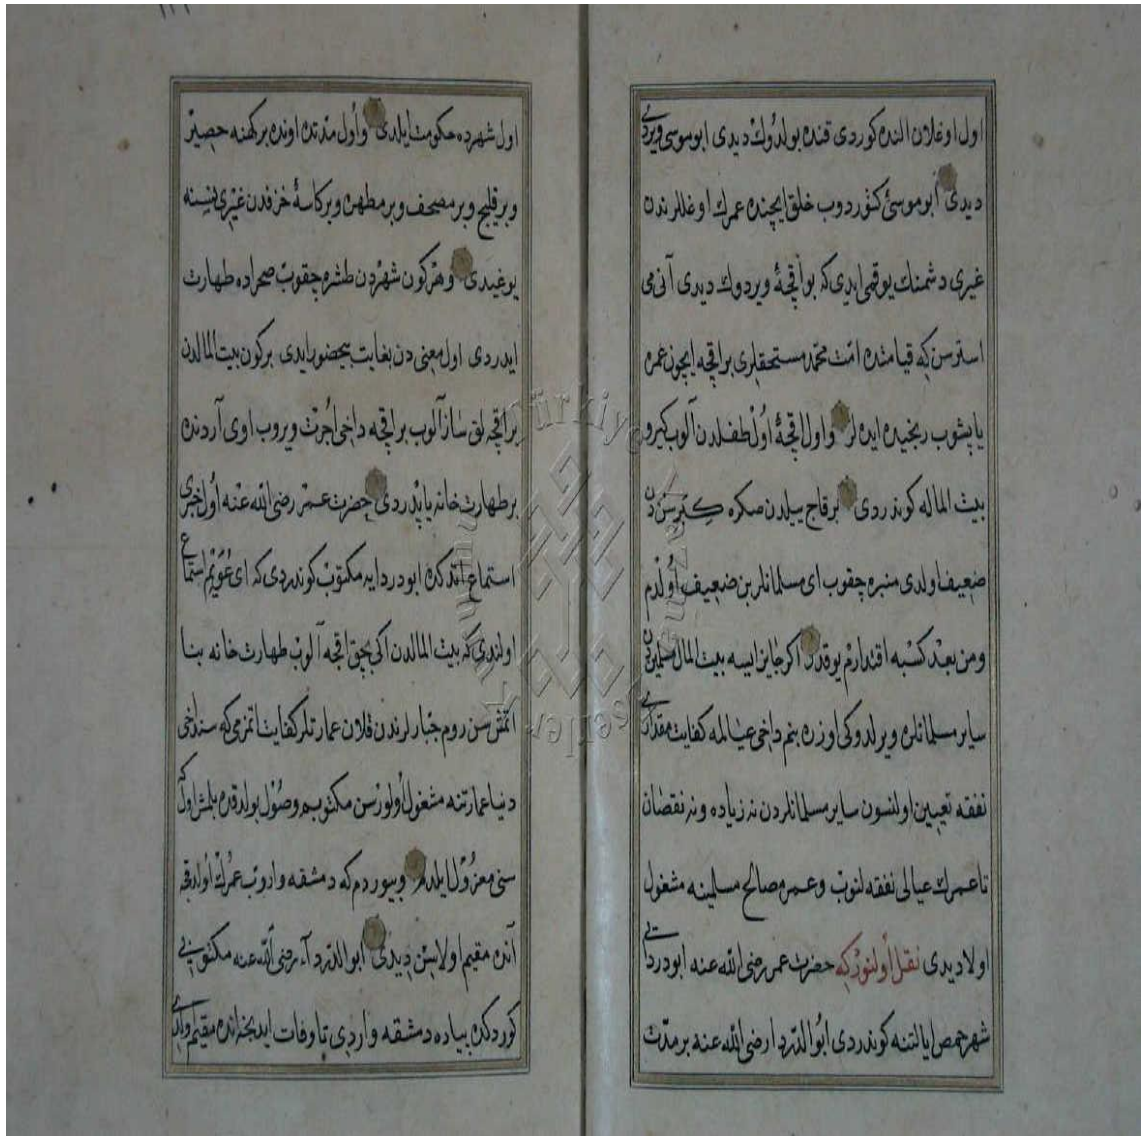 اول اوغلان النده كوردی قنده بولدوك دیدی ابو موسی ویردی
دیدی ابو موسیٔ كتوردوب خلق ایچنده عمرك اوغللرندن
غیری دشمنك یوقمی ایدی كه بو اقچهٔ ویردوك دیدی آنی می
استرسن كه قیامتده امت محمد مستحقلری بر اقچه ایچون عمره
یاپشوب رنجیده ایده لر و اول اقچهٔ اول طفلدن آلوب كیرو
بیت الماله كوندردی بر قاچ ییلدن صكره كبر سندن
ضعیف اولدی منبره چقوب ای مسلمانلر بن ضعیف اولدم
ومن بعد كسبه اقتدارم یوقدر اكر جایز ایسه بیت المال مسلمیندن
سایر مسلمانلره ویرلدوكی اوزره بنم داخی عیالمه كفایت مقداری
نفقه تعیین اولنسون سایر مسلمانلردن نه زیاده ونه نقصان
تا عمرك عیالی نفقه لنوب وعمر مصالح مسلمینه مشغول
اولا دیدی نقل اولنور كه حضرت عمر رضی الله عنه ابودردایی
شهر حمص ایالتنه كوندردی ابو الدردا رضی الله عنه بر مدت
اول شهرده حكومت ایلدی و اول مدتده اونده بر كهنه حصیر
و بر قلیج و بر مصحف و بر مطهره و بر كاسهٔ خزفدن غیری نسنه
یوغیدی و هر كون شهردن طشره چقوب صحراده طهارت
ایدردی اول معنی دن بغایت بیحضور ایدی بر كون بیت المالدن
بر اقچه لق ساز آلوب بر اقچه داخی اجرت ویروب اوی آردنده
بر طهارت خانه یاپدردی حضرت عمر رضی الله عنه اول خبری
استماع اتدكده ابو دردایه مكتوب كوندردی كه ای عویمر استماع
اولندی كه بیت المالدن اكی بچق اقچه آلوب طهارت خانه بنا
اتمش سن روم جبارلرندن قلان عمارتلر كفایت اتمزمی كه سنداخی
دنیا عمارتنه مشغول اولورسن مكتوبم وصول بولدقده بلمش اول كه
سنی معزول ایلدم و بیوردم كه دمشقه واروب عمرك اولدقچه
آنده مقیم اولاسن دیدی ابو الدرداء رضی الله عنه مكتوبی
كوردكده پیاده دمشقه واردی تا وفات ایدنجه انده مقیم اولدی
Türkiye Yazma Eserler Kurumu